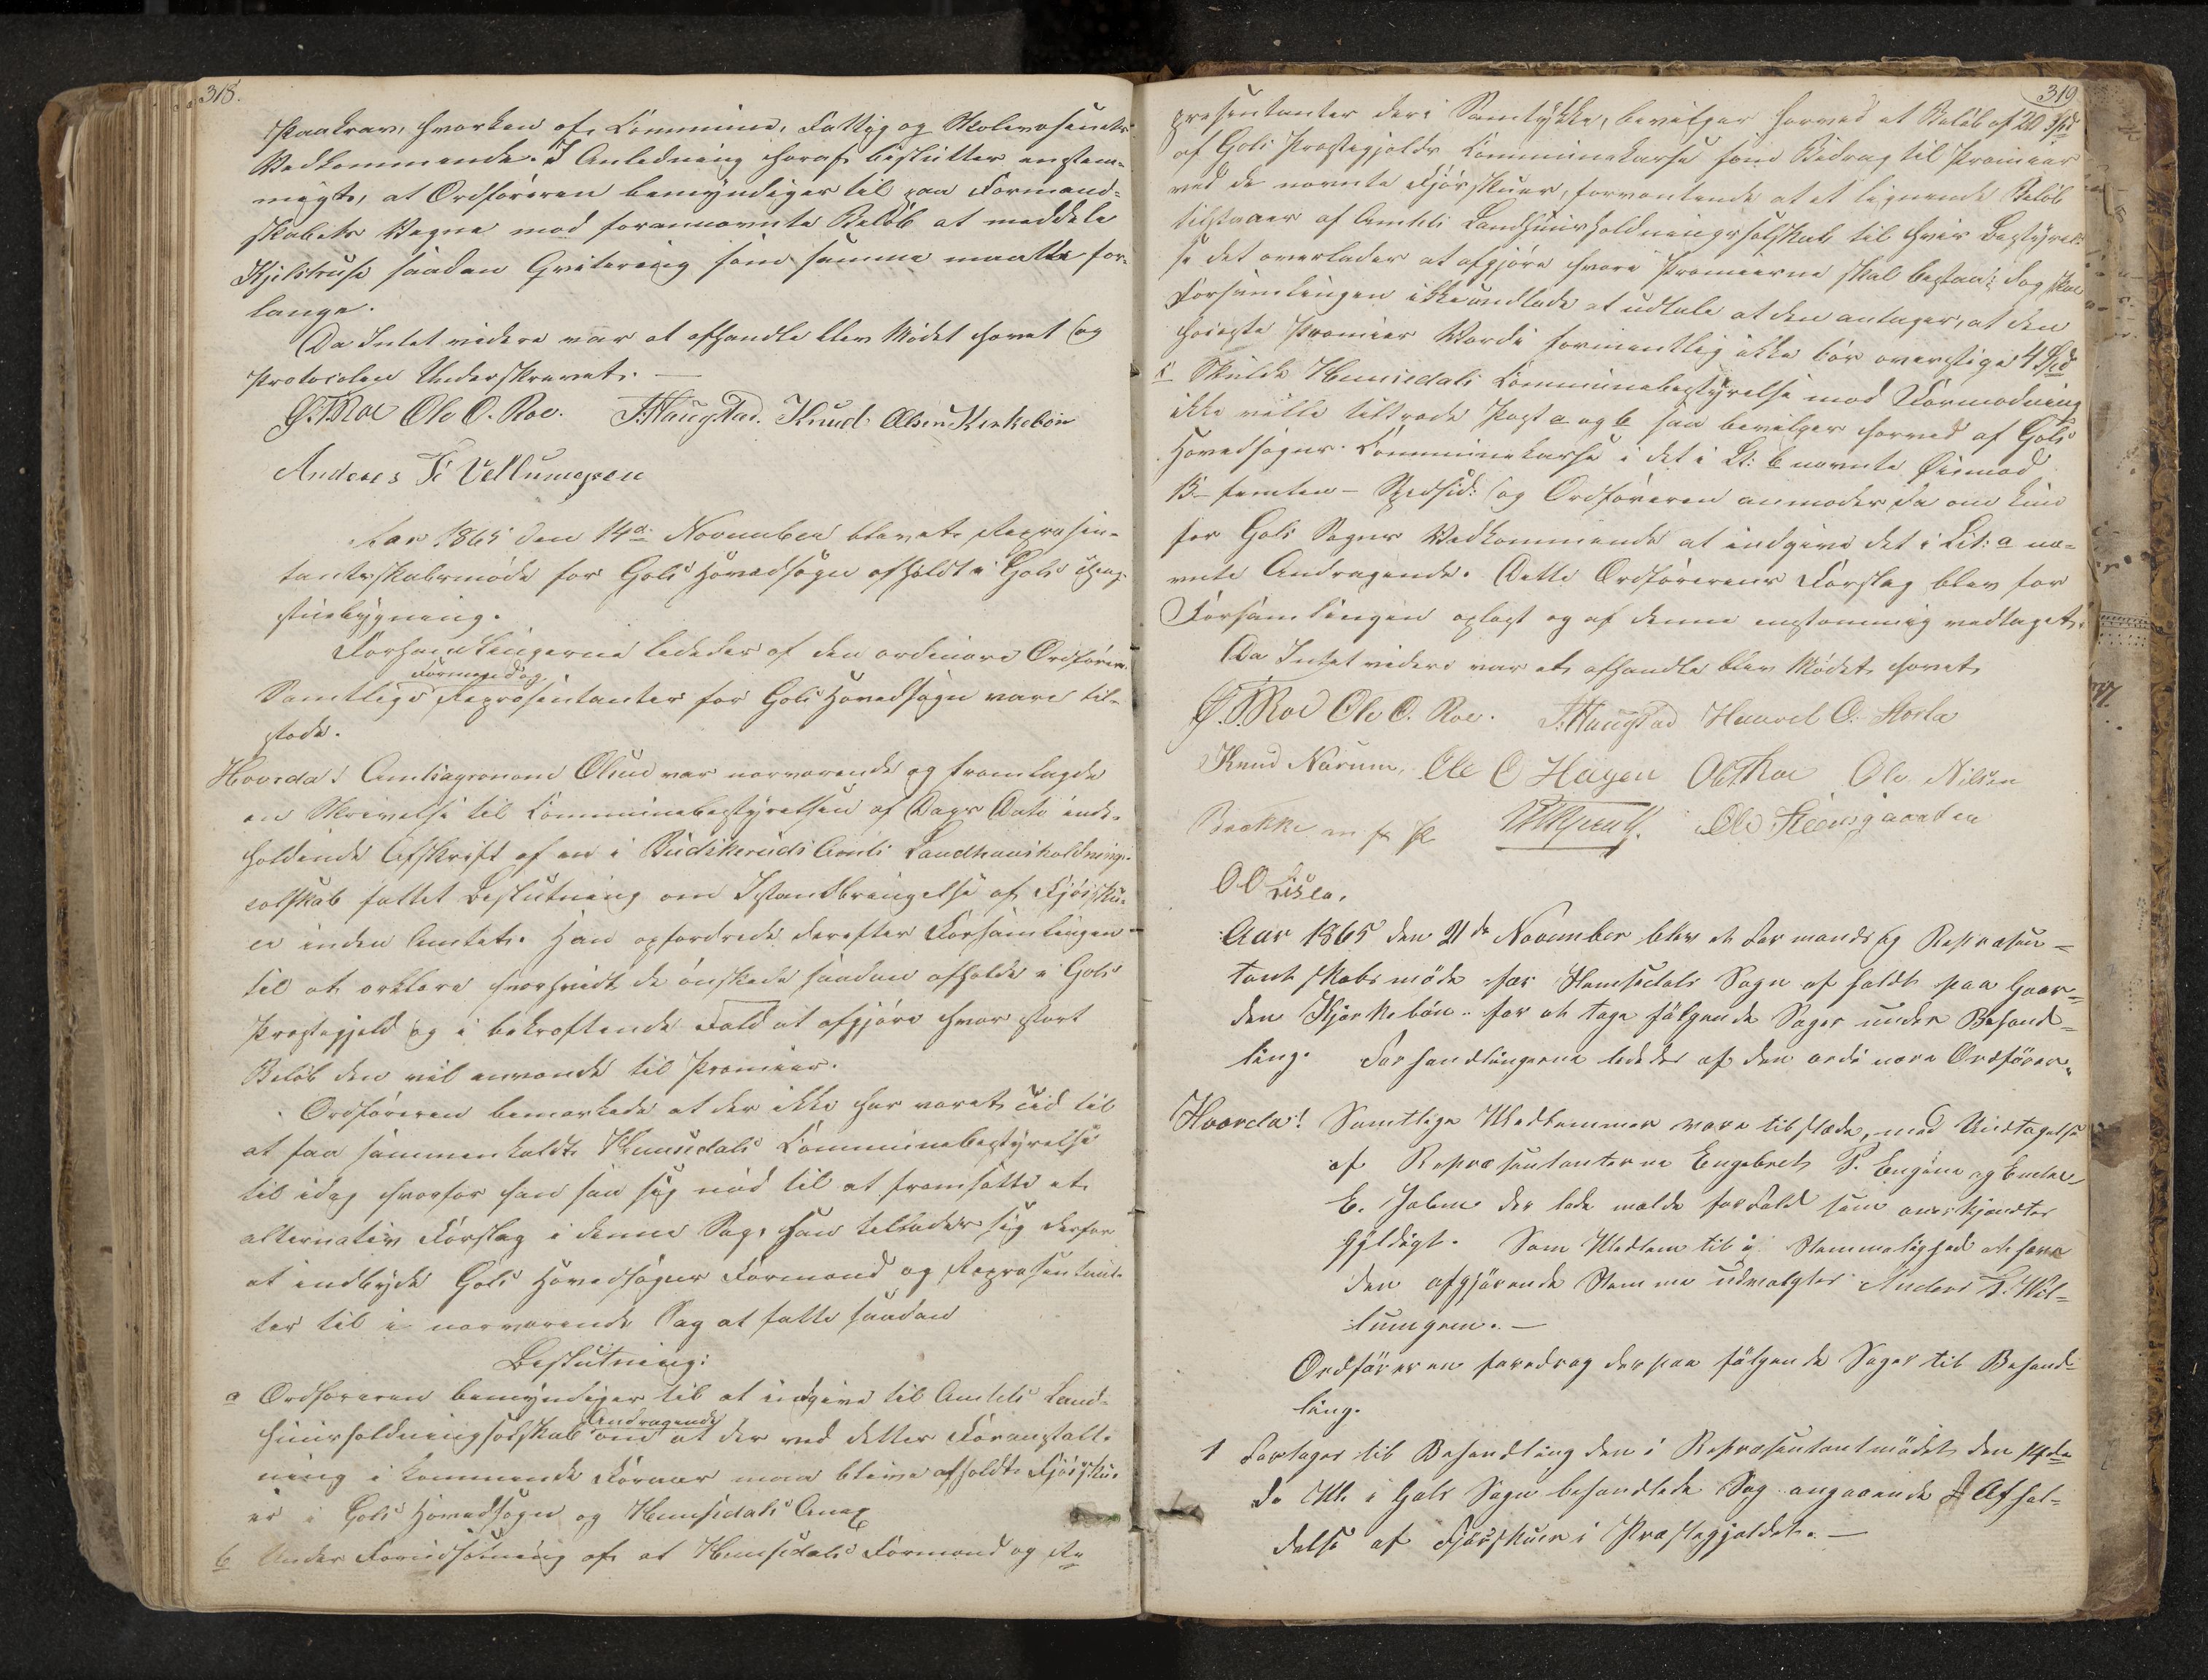 318.
Paakrav, hvorken af Commune, Fattig og Skolevæsenets
Vedkommende. I Anledning heraf beslutter enstem-
migt, at Ordføreren bemyndiges til paa Formand-
skabets Vegne mod forannævnte Beløb at meddele
Kjelstrup saadan Qvitering som samme maatte for-
lange.
Da Intet videre var at afhandle blev Mødet hævet og
Protocolen Underskrevet. —
Ole O. Roe. Knud Olsen Kirkebøn
Anders
Aar 1865 den 14de November blev et Repræsen-
tantskabsmøde for Gols Hovedsogn afholdt i Gols Thing-
stuebygning.
Forhandlingerne lededes af den ordinære Ordfører.
Formænd og
Samtlige Repræsentanter for Gols Hovedsogn vare til-
stede.
Hvorda! Amtsagronom Olsen var nærværende og fremlagde
en Skrivelse til Communebestyrelsen af Dags Dato inde-
holdende Afskrift af en i Budskeruds Amts Landhuusholdnings-
selskab fattet Beslutning om Istandbringelse af Fjøssku-
er inden Amtet. Han opfordrede derefter Forsamlingen
til at erklære hvorvidt de ønskede saadan afholdt i Gols
Præstegjeld og i bekræftende Fald at afgjøre hvor stort
Beløb den vil anvende til Præmier.
Ordføreren bemærkede at der ikke har været Tid til
at faa sammenkaldt Hemsedals Communebestyrelse
til idag hvorfor han saa sig nød til at fremsætte et
alternativ Forslag i denne Sag, han tillader sig derfor
at indbyde Gols Hovedsogns Formænd og Repræsentant-
ter til i nærværende Sag at fatte saadan
Beslutning:
a Ordføreren bemyndiges til at indgive til Amtets Land-
Andragende
huusholdningsselskab om at der ved dettes Foranstalt-
ning i kommende Foraar maa blive afholdt Fjøssku-
er i Gols Hovedsogn og Hemsedals Anex
b Under Forudsætning af at Hemsedals Formænd og Re
319
præsentanter deri Samtykke, bevilges herved et Beløb af 20 Spd
af Gols Præstegjelds Communekasse som Bidrag til Præmier
ved de nævnte Fjøsskuer, forventende at et lignende Beløb
tilstaaes af Amtets Landhuusholdningsselskab til hvis Bestyrel-
se det overlades at afgjøre hvori Præmierne skal bestaa; dog skal
Forsamlingen ikke undlade at udtale at den antager, at den
høieste Præmies Værdi formentlig ikke bør overstige 4 Spd
c Skulde Hemsedals Communebestyrelse mod Formodning
ikke ville tiltræde Post a og b saa bevilges herved af Gols
Hovedsogns Communekasse i det i Lt: b nævnte Øiemed
15 – femten – Spesid: og Ordføreren anmodes da om kun
for Gols Sogns Vedkommende at indgive det i Lit: a næ-
vnte Andragende. Dette Ordførerens Forslag blev for
Forsamlingen oplæst og af denne enstemmig vedtaget.
Da Intet videre var at afhandle blev Mødet hævet
Ole O. Roe.
Knud Narum, Ole O Hagen Ole Nilsen
Brække m f P
O O Lisla,
Aar 1865 den 21de November blev et Formands og Repræsen-
tantskabs møde for Hemsedals Sogn af holdt paa Gaar-
den Kjørkebøn .. for at tage følgende Sager under Behand-
ling. Forhandlingerne lededes af den ordinære Ordfører.
Hvorda! Samtlige Medlemmer vare tilstæde, med Undtagelse
af Repræsentanterne Engebret P. Engene og
E. der lode melde forfald som anerkjendtes
Gyldigt. Som Medlem til i Stemmelighed at have
den afgjørende Stemme udvalgtes Anders
Ordføreren foredrog derpaa følgende Sager til Behand-
ling.
1 Foretages til Behandling den i Repræsentantmødet den 14de
ds Mt. i Gols Sogn behandlede Sag angaaende Afhol-
delse af Fjøsskuer i Præstegjeldet. —